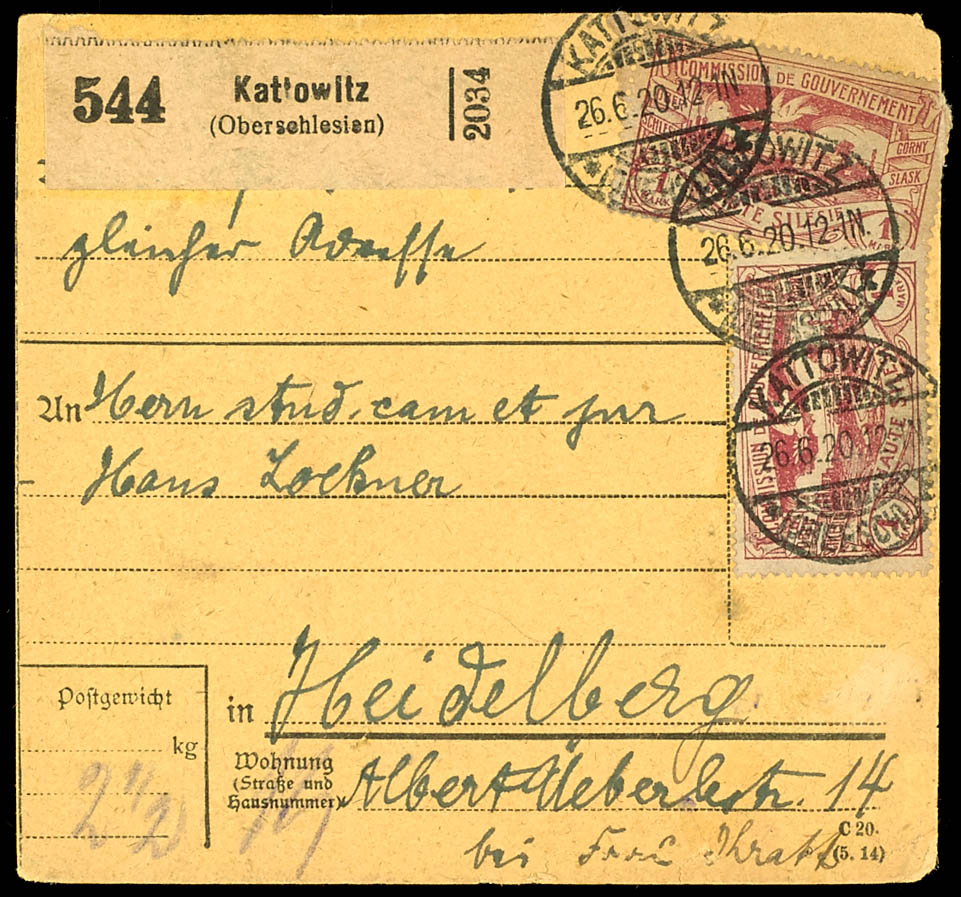 544 Kattowitz
(Oberschlesien)
2034
KATTOWITZ
26.6.20.12-1N.
COMMISSION DE GOUVERNEMENT
GORNY
SLASK
HAUTE SILESIE
1
MARK
KATTOWITZ
26.6.20.12-1N.
gleicher Adresse
1
MARK
KATTOWITZ
26.6.20.12-1N.
An Herrn stud. cam et jur
Hans Lockner
Postgewicht
kg
2 1/2
in Heidelberg
Wohnung
(Straße und
Hausnummer)
Albert Ueberlestr. 14
bei Frau
C 20.
(5. 14)